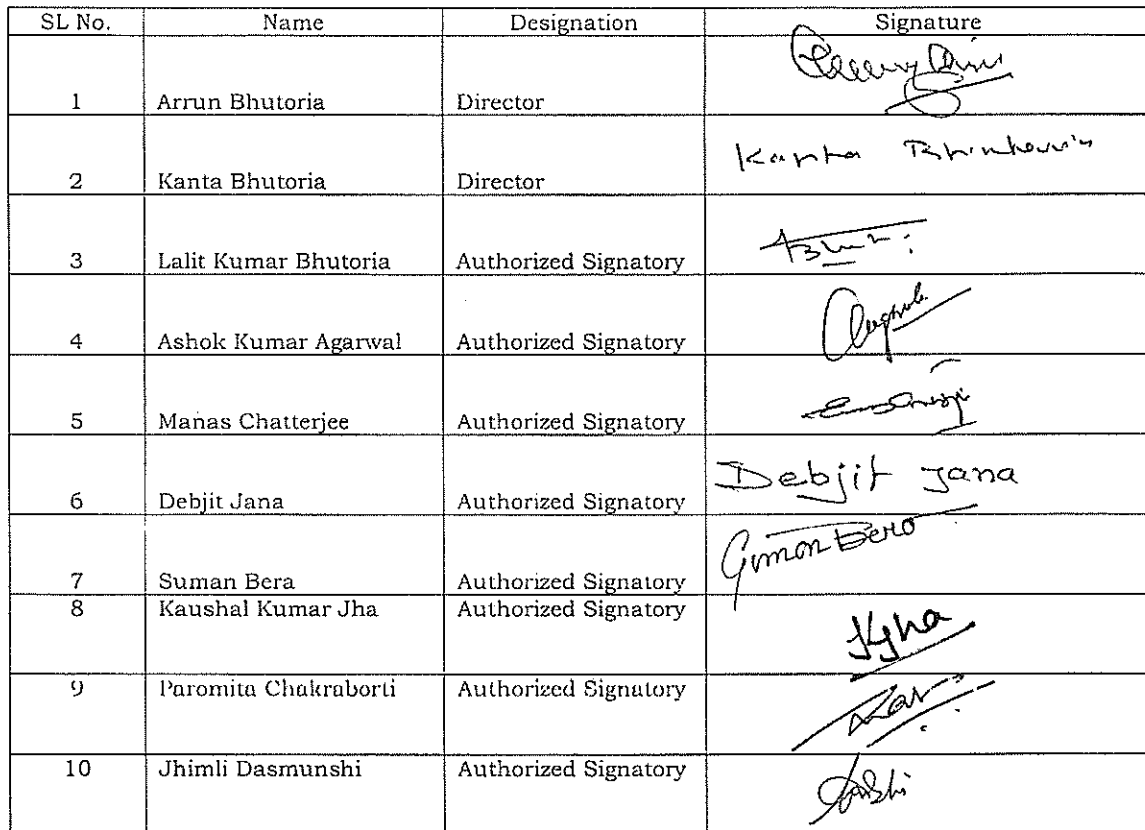 SL No. Name Designation Signature
1 Arrun Bhutoria Director
2 Kanta Bhutoria Director Kanta
3 Lalit Kumar Bhutoria Authorized Signatory
4 Ashok Kumar Agarwal Authorized Signatory
5 Manas Chatterjee Authorized Signatory
6 Debjit Jana Authorized Signatory Debjit Jana
7 Suman Bera Authorized Signatory
8 Kaushal Kumar Jha Authorized Signatory KJha
9 Paromita Chakraborti Authorized Signatory
10 Jhimli Dasmunshi Authorized Signatory